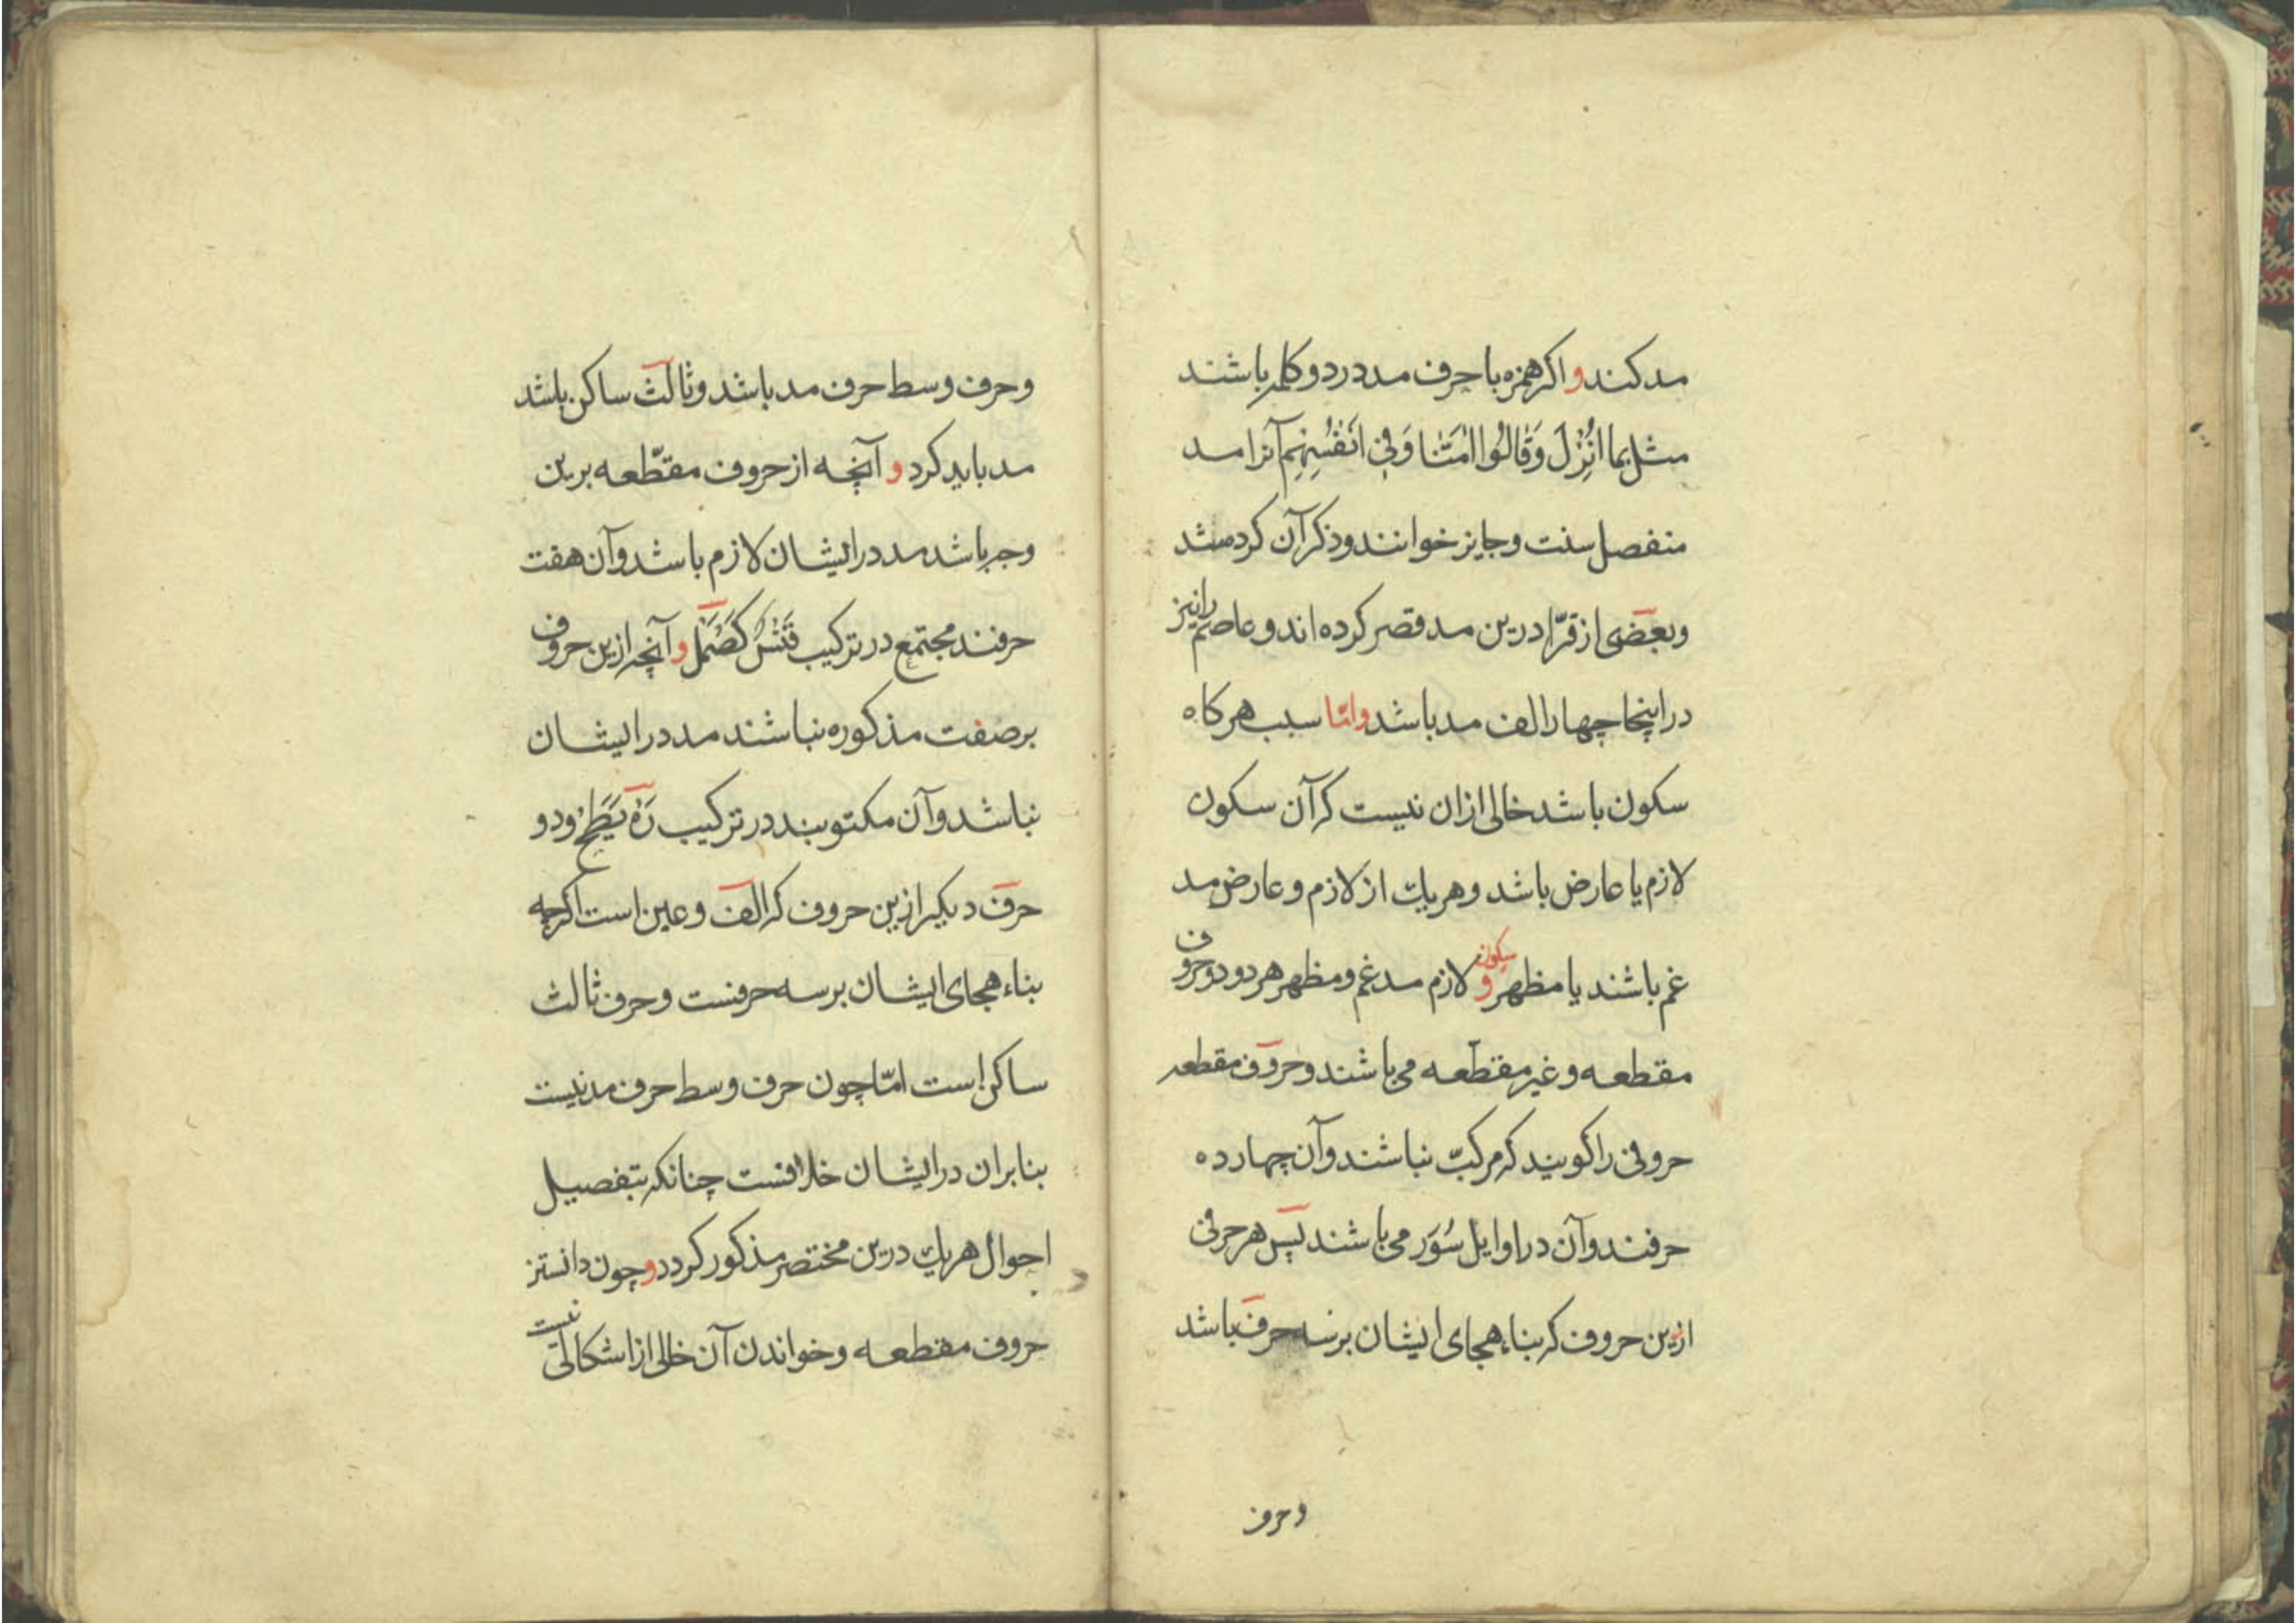 مد کنند و اکر همزه با حرف مد در دو کلمه باشند
مثل بما اُنْزِلَ وَقَالُوا اٰمَنَّا وَفِی اَنْفُسِهِم آنرا مد
منفصل سنت و جایز خوانند و ذکر آن کرده شد
و بعضی از قرّا درین مد قصر کرده اند و عاصم را نیز
در اینجا چهار الف مد باشد و امّا سبب هر کاه
سکون باشد خالی ازان نیست که آن سکون
لازم یا عارض باشد و هر یك از لازم و عارض مد
غم باشند یا مظهر و سکون لازم مدغم و مظهر هر دو در حروف
مقطعه و غیر مقطّعه می باشند و حروف مقطعه
حروفی را کویند که مرکبّ نباشند و آن چهارده
حرفند و آن در اوایل سُوَر می باشند پس هر حرفی
ازین حروف که بناء هجای ایشان بر سه حرف باشد
و حرف
و حرف وسط حرف مد باشد و ثالث ساکن باشد
مد باید کرد و آنچه از حروف مقطّعه برین
وجه باشد مد در ایشان لازم باشد و آن هفت
حرفند مجتمع در ترکیب قَنْسُ کَصُمَلَ و آنچه ازین حروف
بر صفت مذکوره نباشند مد در ایشان
نباشد و آن مکتوبند در ترکیب رَهْ یَطَحْ و دو
حرف دیکر ازین حروف که الف و عین است اکرچه
بناء هجای ایشان بر سه حرفست و حرف ثالث
ساکن است امّا چون حرف وسط حرف مد نیست
بنا بران در ایشان خلافست چنانکه بتفصیل
احوال هر یك درین مختصر مذکور کردد و چون دانستن
حروف مقطعه و خواندن آن خالی از اشکالی نیست